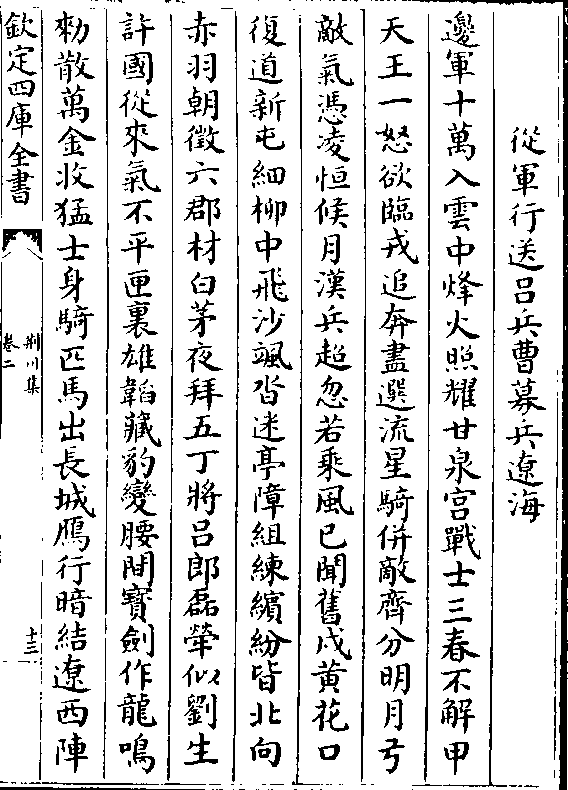 從軍行送呂兵曹募兵遼海
邊軍十萬入雲中烽火照耀甘泉宮戰士三春不解甲
天王一怒欲臨戎追奔盡選流星騎併敵齊分明月弓
敵氣憑凌恒候月漢兵超忽若乘風已聞舊戍黄花口
復道新屯細柳中飛沙颯沓迷亭障組練繽紛皆北向
赤羽朝徵六郡材白茅夜拜五丁將呂郎磊犖似劉生
許國從來氣不平匣裏雄韜藏豹變腰間寳劍作龍鳴
勑散萬金收猛士身騎匹馬出長城鴈行暗結遼西陣
欽定四庫全書
荆川集
卷二
十三